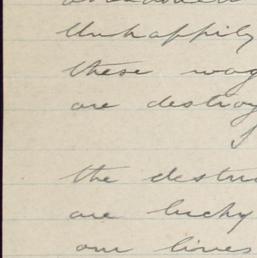 Unhappily
these wag
are destroy
the destru
are lucky
our lives